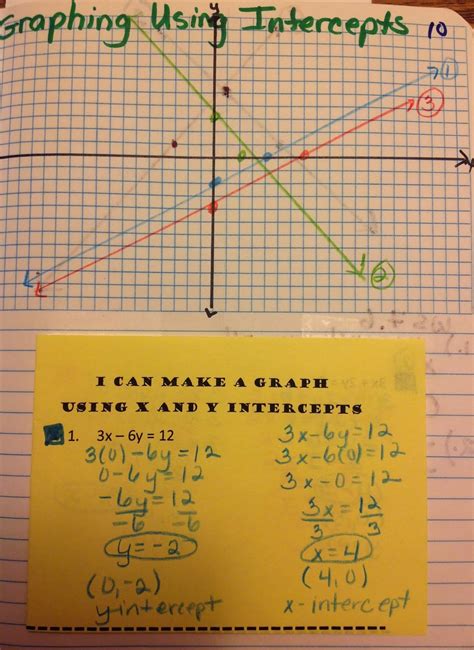 Graphing Using Intercepts 10
y
x
1
3
2
I CAN MAKE A GRAPH
USING X AND Y INTERCEPTS
1. 3x – 6y = 12
3(0) - 6y = 12
0 - 6y = 12
-6y = 12
-6 -6
y = -2
(0, -2)
y-intercept
3x - 6y = 12
3x - 6(0) = 12
3x - 0 = 12
3x = 12
3 3
x = 4
(4, 0)
x - intercept